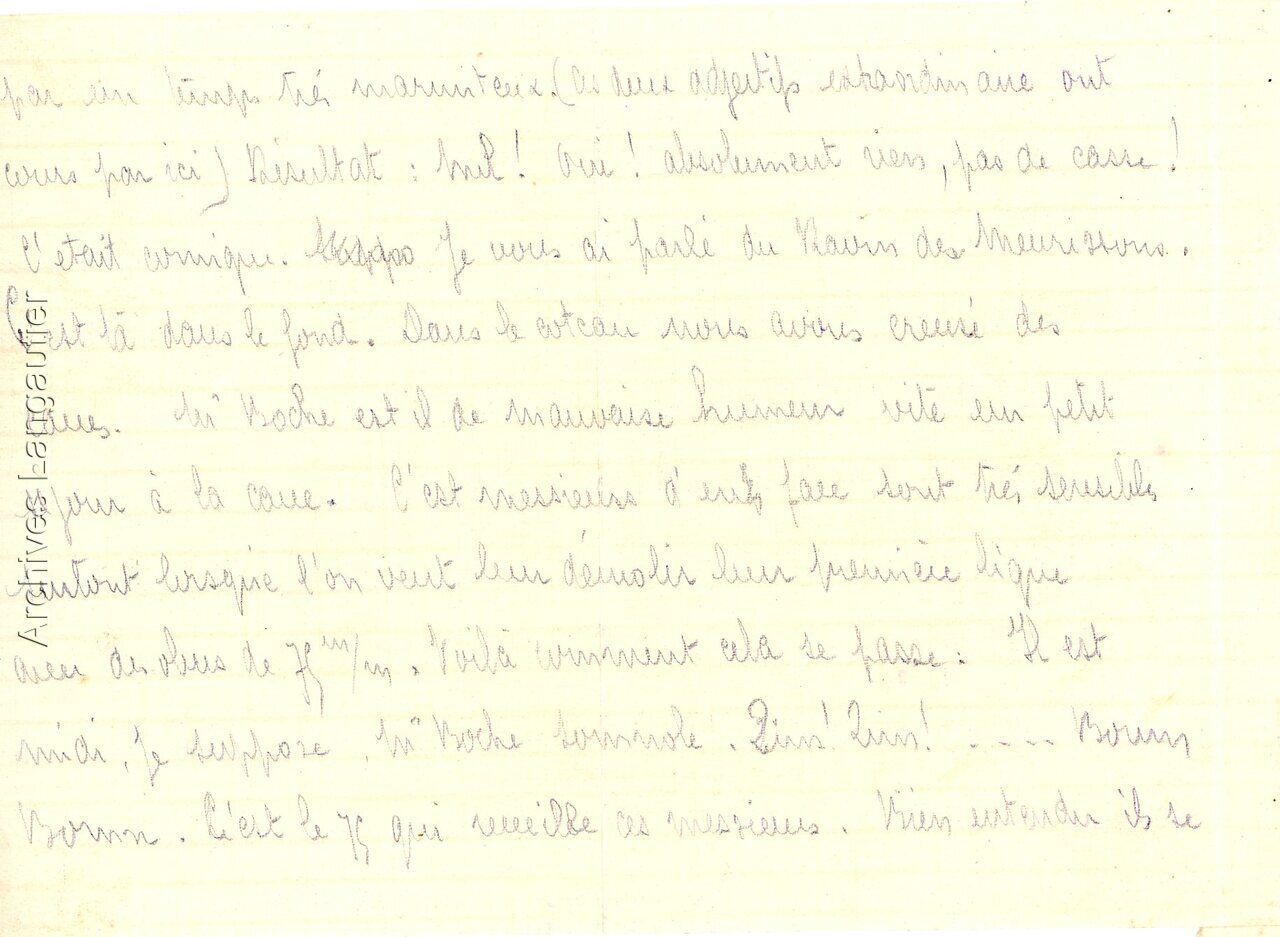 par un temps très marmiteux. (Ces deux adjectifs extraordinaire ont
cours par ici) Résultat : Nul ! Oui ! absolument rien, pas de casse !
C'était comique. Je vous ai parlé du Ravin des Meurissons.
C'est là dans le fond. Dans le coteau nous avons creusé des
caves. Mr Boche est il de mauvaise humeur vite un petit
séjour à la cave. C'est messieurs d'en face sont très sensibles
surtout lorsque l'on veut leur démolir leur première ligne
avec des obus de 75 m/m. Voilà comment cela se passe : Il est
midi, je suppose, Mr Boche somnole. Zim! Zim! .... Boum
Boum. C'est le 75 qui reveille ces messieurs. Bien entendu ils se
Archives Langautier